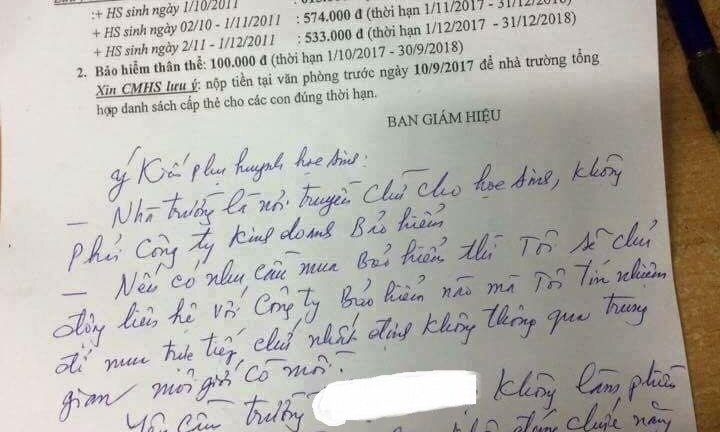 :+ HS sinh ngày 1/10/2011
+ HS sinh ngày 02/10 - 1/11/2011 : 574.000 đ (thời hạn 1/11/2017 - 31/12/2018)
+ HS sinh ngày 2/11 - 1/12/2011 : 533.000 đ (thời hạn 1/12/2017 - 31/12/2018)
2. Bảo hiểm thân thể: 100.000 đ (thời hạn 1/10/2017 - 30/9/2018)
Xin CMHS lưu ý: nộp tiền tại văn phòng trước ngày 10/9/2017 để nhà trường tổng
hợp danh sách cấp thẻ cho các con đúng thời hạn.
BAN GIÁM HIỆU
Ý Kiến phụ huynh học sinh:
– Nhà trường là nơi truyền chữ cho học sinh, không
phải Công ty kinh doanh Bảo hiểm
– Nếu có nhu cầu mua Bảo hiểm thì Tôi sẽ chủ
động liên hệ với Công ty Bảo hiểm nào mà Tôi Tín nhiệm
để mua trực tiếp, chứ nhất định không thông qua trung
gian môi giới cò mồi.
Yêu cầu trường không làm phiền
chức năng